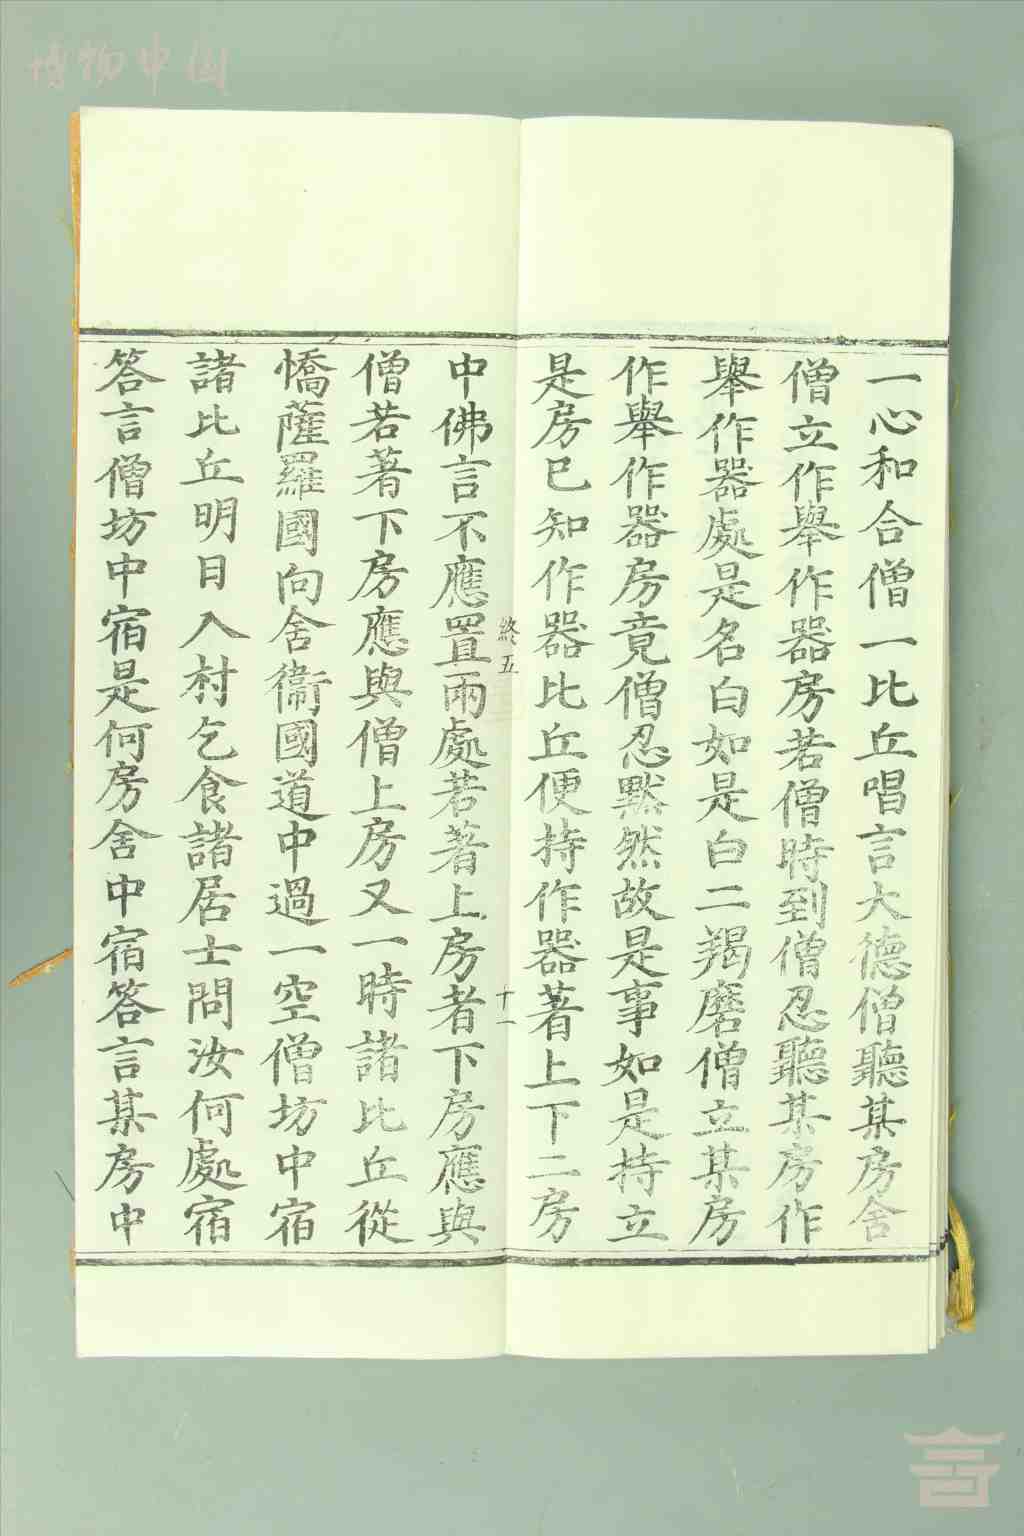 一心和合僧一比丘唱言大德僧聽某房舍
僧立作舉作器房若僧時到僧忍聽某房作
舉作器處是名白如是白二羯磨僧立某房
作舉作器房竟僧忍默然故是事如是持立
是房已知作器比丘便持作器著上下二房
終五
十一
中佛言不應置兩處若著上房者下房應與
僧若著下房應與僧上房又一時諸比丘從
憍薩羅國向舍衞國道中過一空僧坊中宿
諸比丘明日入村乞食諸居士問汝何處宿
答言僧坊中宿是何房舍中宿答言某房中
博物中国